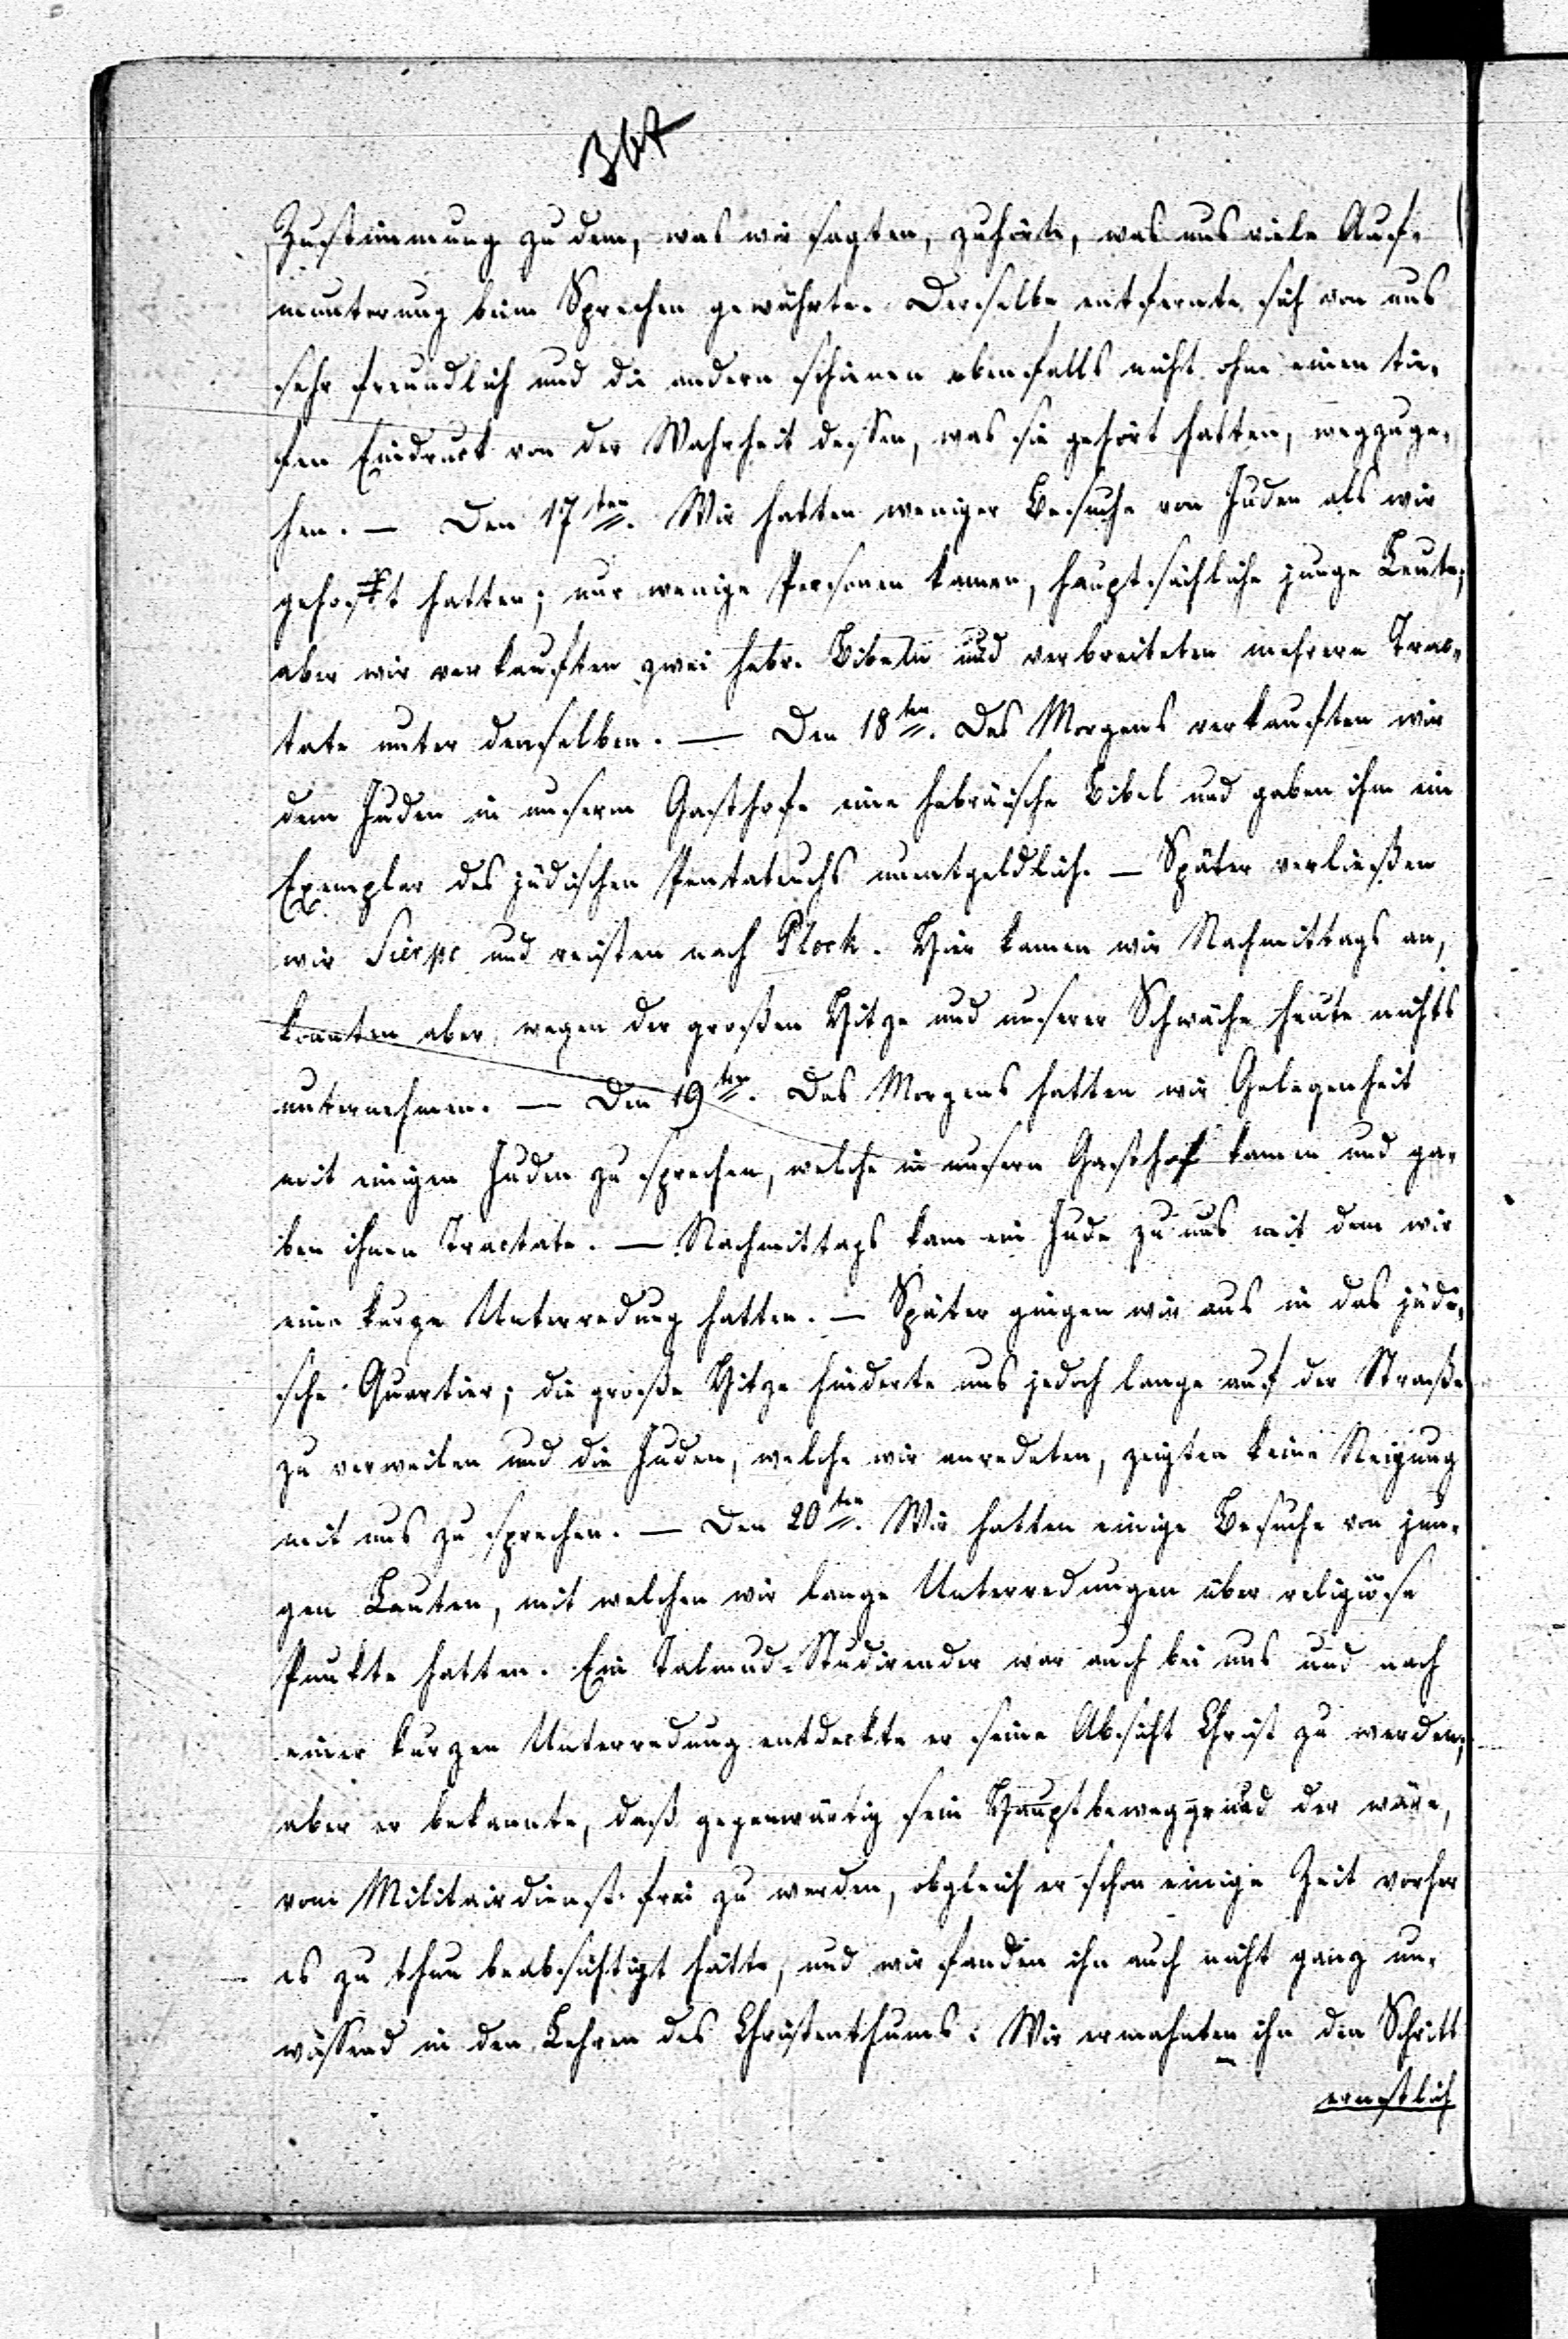 367
Zustimmung zu dem, was wir sagten, zuhörte, was uns viele Auf-
munterung beim Sprechen gewährte. Derselbe entfernte sich von uns
sehr freundlich und die andern schienen ebenfalls nicht ohne einen tie-
fen Eindruck von der Wahrheit dessen, was sie gehört hatten, wegzuge-
hen. — Den 17ten. Wir hatten weniger Besuche von Juden als wir
gehofft hatten; nur wenige Personen kamen, hauptsächliche junge Leute;
aber wir verkauften zwei hebr. Bibeln und verbreiteten mehrere Trac-
tate unter denselben. — Den 18ten. Des Morgens verkauften wir
dem Juden in unserm Gasthofe eine hebräische Bibel und gaben ihm ein
Exemplar des jüdischen Pentateuchs unentgeldlich. — Später verließen
wir Sierpc und reisten nach Plock. Hier kamen wir Nachmittags an,
konnten aber, wegen der großen Hitze und unserer Schwäche heute nichts
unternehmen. — Den 19ten. Des Morgens hatten wir Gelegenheit
mit einigen Juden zu sprechen, welche in unsern Gasthof kamen und ga-
ben ihnen Tractate. — Nachmittags kam ein Jude zu uns mit dem wir
eine kurze Unterredung hatten. — Später gingen wir aus in das jüdi-
sche Quartier; die große Hitze hinderte uns jedoch lange auf der Straße
zu verweilen und die Juden, welche wir anredeten, zeigten keine Neigung
mit uns zu sprechen. — Den 20ten. Wir hatten einige Besuche von jun-
gen Leuten, mit welchen wir lange Unterredungen über religiöse
Punkte hatten. Ein Talmud-Studirender war auch bei uns und nach
einer kurzen Unterredung entdeckte er seine Absicht Christ zu werden;
aber er bekannte, daß gegenwärtig sein Hauptbeweggrund der wäre,
vom Militairdienst frei zu werden, obgleich er schon einige Zeit vorher
es zu thun beabsichtigt hätte, und wir fanden ihn auch nicht ganz un-
wissend in den Lehren des Christenthums. Wir ermahnten ihn den Schritt
ernstlich